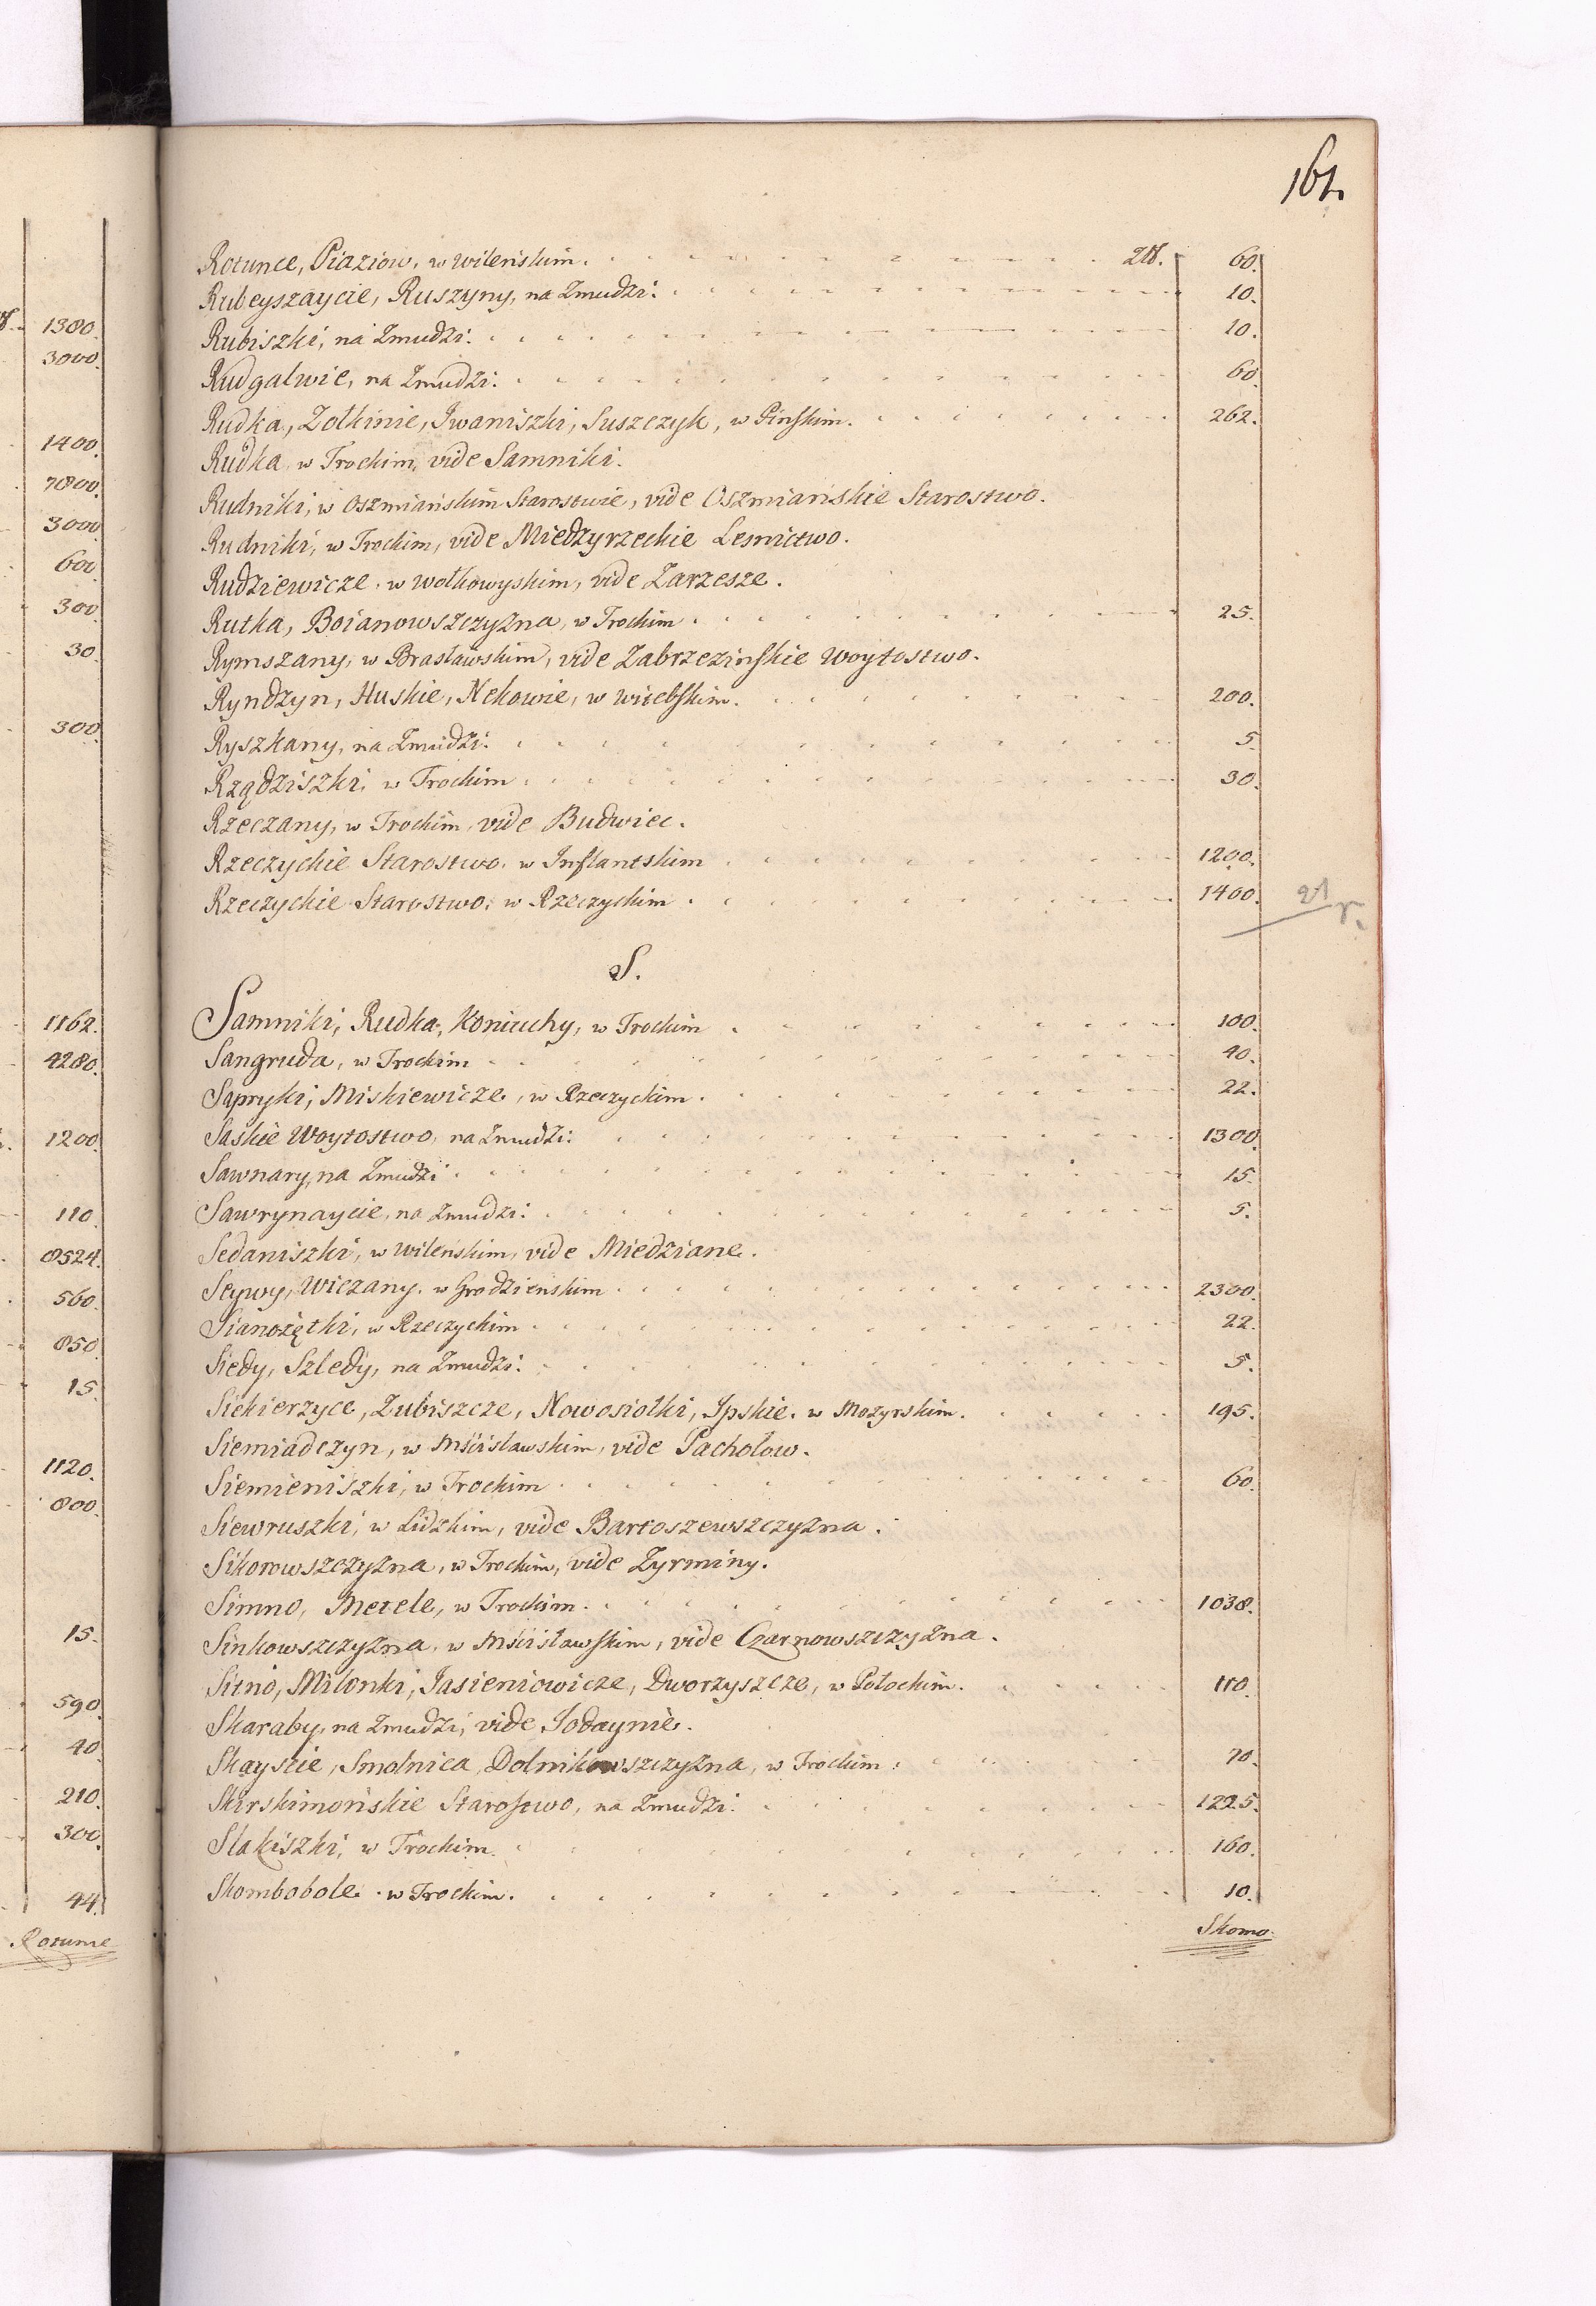 161.
Rotunce, Piaziow, w Wilenskim. 2tt. 60.
Rubeyszaycie, Ruszyny, na Zmudzi. 10.
Rubiszki, na Zmudzi. 10.
Rudgalwie, na Zmudzi. 60
Rudka, Zolkinie, Jwaniszki, Suszczyk, w Pinskim. 262.
Rudka w Trockim, vide Samniki.
Rudniki, w Oszmiańskim Starostwie, vide Oszmiańskie Starostwo.
Rudniki, w Trockim, vide Miedzyrzeckie Lesnictwo.
Rudziewicze w Wołkowyskim, vide Zarzesze.
Rutka, Boianowszczyzna, w Trockim. 25.
Rymszany, w Brasławskim, vide Zabrzezinskie Woytostwo.
Ryndzyn, Huskie, Nekowie, w Witebskim. 200.
Ryszkany, na Zmudzi. 5.
Rządziszki, w Trockim. 30.
Rzeczany, w Trockim, vide Budwiec.
Rzeczyckie Starostwo, w Inflantskim 1200.
Rzeczyckie Starostwo, w Rzeczyckim. 1400. 21
S.
Samniki, Rudka, Koniuchy, w Trockim 100.
Sangruda, w Trockim 40.
Sapryki, Miskiewicze, w Rzeczyckim. 22.
Saskie Woytostwo, na Zmudzi. 1300.
Sawnary, na Zmudzi. 15.
Sawrynaycie, na Zmudzi. 5.
Sedaniszki, w Wilenskim, vide Miedziane.
Seywy, Wiczany, w Grodzienskim. 2300.
Sianożątki, w Rzeczyckim. 22.
Siedy, Szledy, na Zmudzi. 5.
Siekierzyce, Zubiszcze, Nowosiołki, Jpskie, w Mozyrskim. 195.
Siemiadczyn, w Mścisławskim, vide Pacholow.
Siemieniszki, w Trockim. 60.
Siewruszki, w Lidzkim, vide Bartoszewszczyzna.
Sikorowszczyzna, w Trockim, vide Zyrminy.
Simno, Metele, w Trockim. 1038.
Sinkowszczyzna, w Mścisławskim, vide Czarnowszczyzna.
Sitno, Milonki, Jasieniowicze, Dworzyszcze, w Połockim. 110.
Skaraby, na Zmudzi, vide Jodaynie.
Skayscie, Smolnica, Dolnikowszczyzna, w Trockim. 70.
Skirskimońskie Starostwo, na Zmudzi. 1225.
Slakiszki, w Trockim. 160.
Skombobole, w Trockim. 10.
Skomo
1380.
3000.
1400.
7800.
3000
600
300.
30.
300.
1162.
4280.
1200.
110.
8524.
560.
850.
15.
1120.
800.
15.
590.
40.
210.
300.
44.
Rotunce